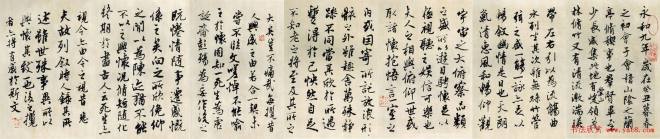 永和九年歲在癸丑暮春
之初會于會稽山陰之蘭
亭脩禊事也群賢畢至
少長咸集此地有崇領
林脩竹又有清流激湍映
帶左右引以為流觴曲
水列坐其次雖無絲竹管
弦之盛一觴一詠亦足以
暢敘幽情是日也天朗
氣清惠風和暢仰觀
宇宙之大俯察品類
之盛所以遊目騁懷足以
極視聽之娛信可樂也
夫人之相與俯仰一世或
取諸懷抱悟言一室
之內或因寄所託放浪形
骸之外雖趣舍萬殊靜
躁不同當其欣於所遇
暫得於己快然自足
不知老之將至及其所之
大矣豈不痛哉每攬昔
人興感之由若合一契未
嘗不臨文嗟悼不能喻
之於懷固知一死生為虛
誕齊彭殤為妄作後之
既惓情隨事遷感慨
係之矣向之所欣俛仰
之間以為陳迹猶不能
不以之興懷況脩短隨化
終期於盡古人云死生亦
視今亦由今之視昔悲
夫故列敘時人錄其所
述雖世殊事異所以
興懷其致一也後之攬
者亦將有感於斯文